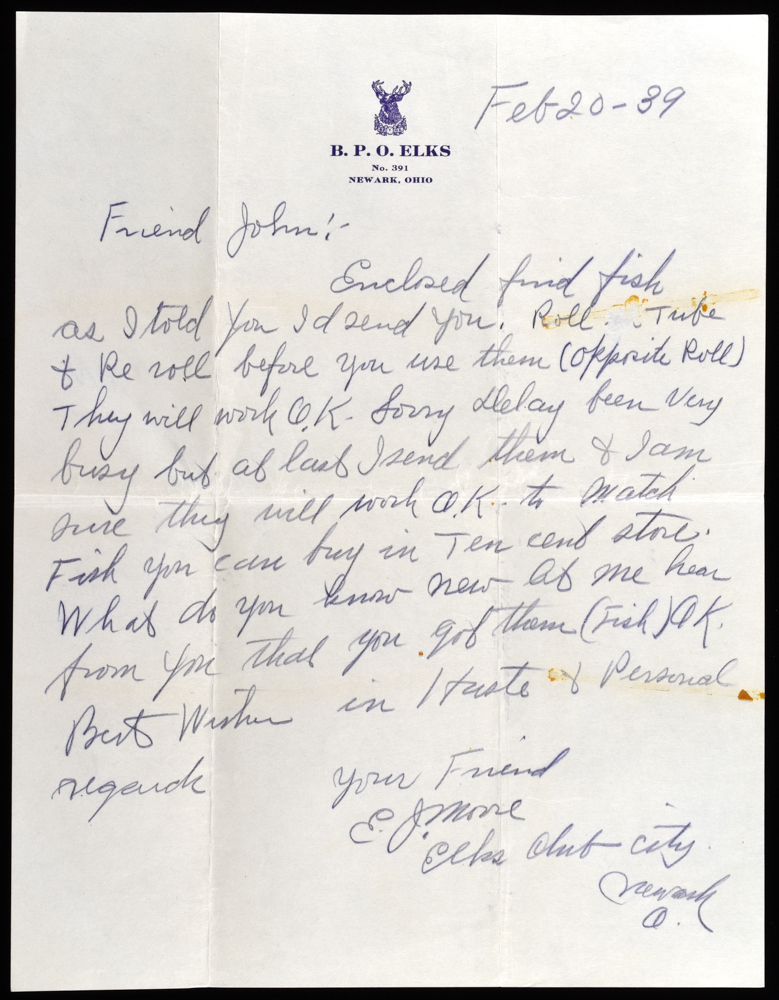 Feb 20-39
B. P. O. ELKS
No. 391
NEWARK, OHIO
Friend John:-
Enclosed find fish
as I told you Id send you. Roll Tube
& Re roll before you use them (opposite Roll)
They will work O.K- Sorry delay been Very
busy but at last I send them & I am
sure they will work O.K. to Match
Fish you can buy in Ten cent store.
What do you know new - let me hear
from you that you got them (Fish) OK.
Best Wishes in Haste & Personal
regards
your Friend
E. J. Moore
Elks Club - city.
Newark
O.